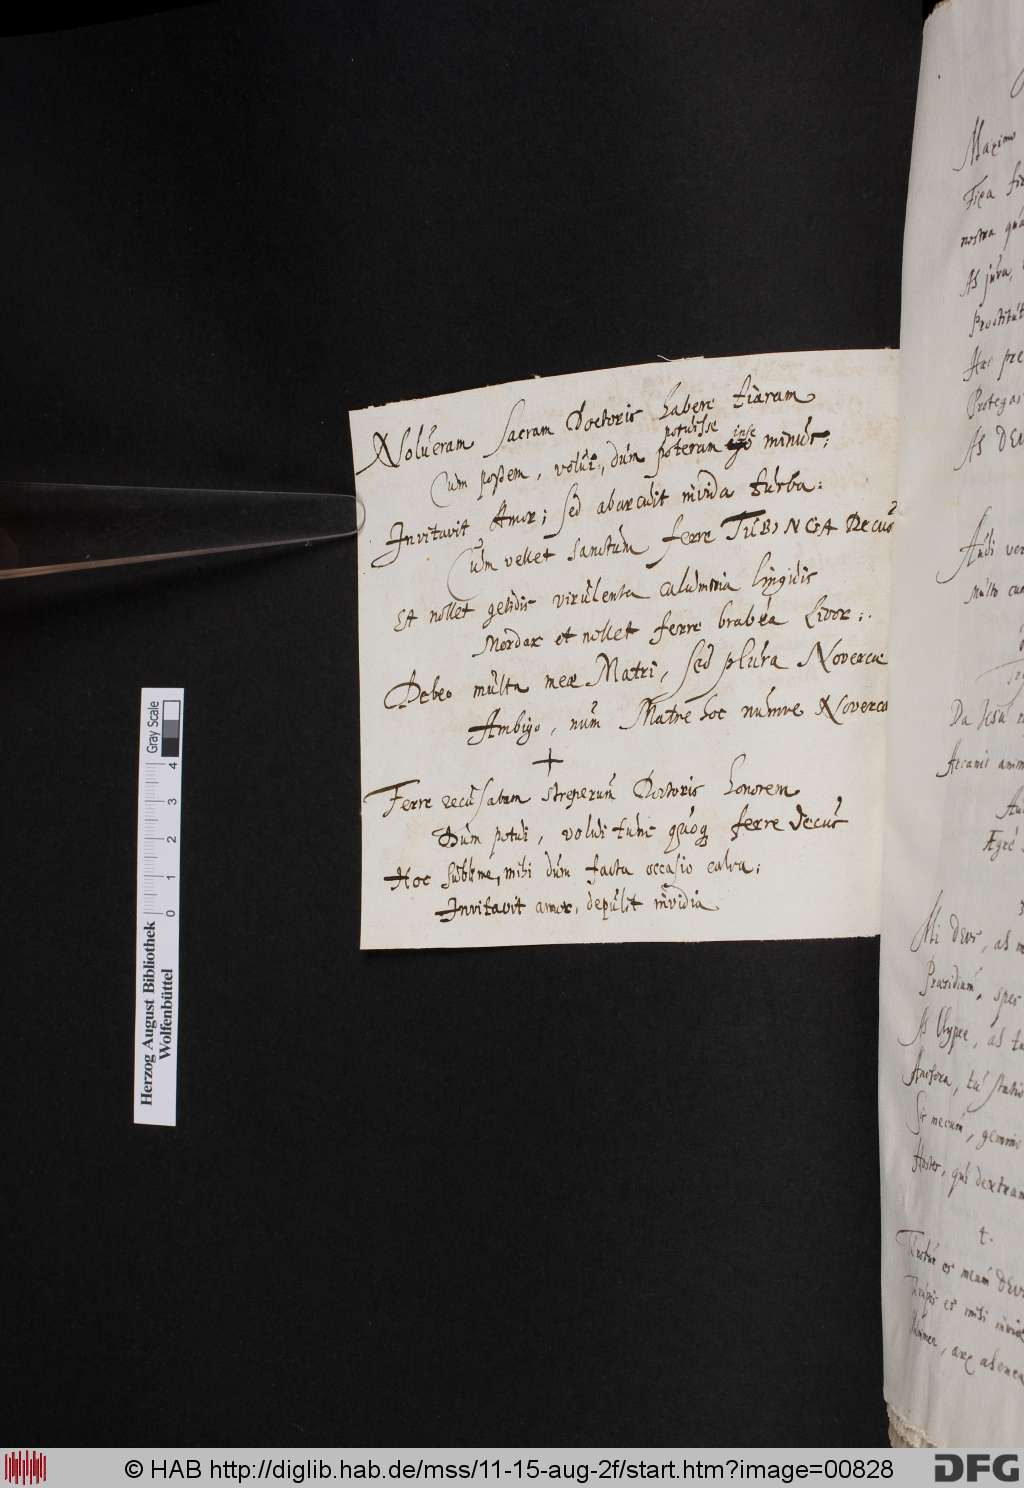 Nolueram sacram Doctoris habere tiaram
potuisse ipse
Cum possem, volui, dum poteram minus;
Invitavit Amor; sed abarcuit invida turba:
Cum vellet sanctum ferre TUBINGA Decus
Et nollet gelidis virulenta calumnia linguis
Mordax et nollet ferre brabéa Livor:.
Debeo multa meæ Matri, sed plura Novercæ
Ambigo, num Matre hoc numve Noverca
+
Ferre recusabam streperum Doctoris honorem
Dum potui, volui tunc quoq ferre decus
Hoc sublime, mihi dum facta occasio calva;
Invitavit amor, depulit invidia
Maximo
Fixa
nostra
As jura,
Prostitut
Hac pre
Protegas
As DEU
Audi ver
Multo cum
Da Jesu
Arcanis anim
Ægré
Mi Deus, as
Præsidium, spes
As Clypee, as tu
Anchora, tu statio
Sis mecum, gemini
Hostes, qui dextram
4.
Turtur es meum DEUS
es mihi
arx ahenea
Herzog August Bibliothek
Wolfenbüttel
0 1 2 3 4
Gray Scale
© HAB http://diglib.hab.de/mss/11-15-aug-2f/start.htm?image=00828
DFG